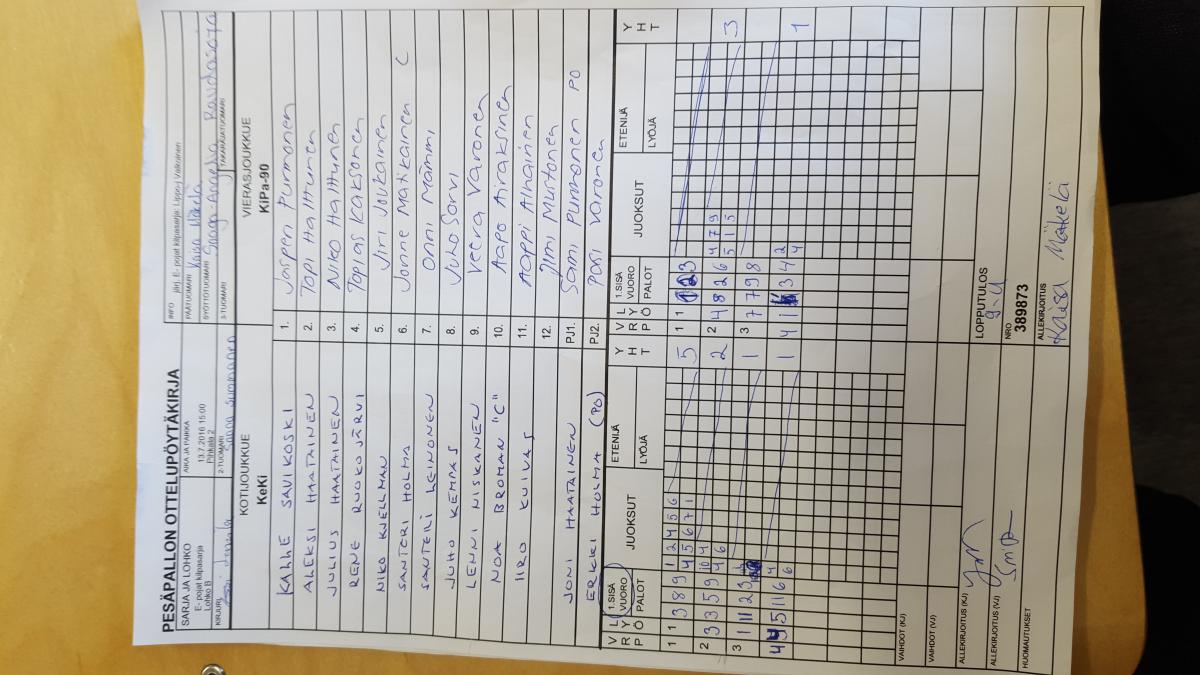 PESÄPALLON OTTELUPÖYTÄKIRJA
SARJA JA LOHKO
E- pojat kilpasarja
Lohko B
AIKA JA PAIKKA
13.7.2016 15:00
Pihkala 2
INFO järj. E- pojat kilpasarja: Lippo-j Valkoinen
PÄÄTUOMARI Kaisa Mäkelä
SYÖTTÖTUOMARI
KIRJURI
2-TUOMARI
3-TUOMARI
TAKARAJATUOMARI
KOTIJOUKKUE
KeKi
VIERASJOUKKUE
KiPa-90
KALLE SAVIKOSKI 1. Jasperi Purmonen
ALEKSI HAATAINEN 2. Topi Halttunen
JULIUS HAATAINEN 3. Niko Halttunen
RENE RUOKOJÄRVI 4. Topias Kaksonen
NIKO KJELLMAN 5. Jiri Joukainen
SANTERI HOLMA 6. Jonne Matikainen C
SANTERI LEINONEN 7. Onni Mämmi
JUHO KEMPAS 8. Juho Sorvi
LENNI NISKANEN 9. Veera Varonen
NOA BROMAN "C" 10. Aapo Airakainen
IIRO KUIVAS 11. Aappi Ahainen
12. Jimi Muotonen
JONI HAATAINEN PJ1. Sami Purmonen PO
ERKKI HOLMA (PO) PJ2. Pasi Varonen
V R P
L Y Ö
1.SISÄ VUORO
PALOT
JUOKSUT
ETENIJÄ
LYÖJÄ
Y H T
V R P
L Y Ö
1.SISÄ VUORO
PALOT
JUOKSUT
ETENIJÄ
LYÖJÄ
Y H T
1 1 3 8 9 1 2 4 5 6 5
4 5 6 7 1
2 3 3 5 9 10 4 2
4 6
3 1 11 2 3 1
4 5 11 6 4 1
6
1 1 2 3
2 4 8 2 6 4 7 9 3
5 1 5
3 7 7 9 8
4 1 3 4 2 1
4
VAIHDOT (KJ)
VAIHDOT (VJ)
ALLEKIRJOITUS (KJ)
ALLEKIRJOITUS (VJ)
HUOMAUTUKSET
LOPPUTULOS
9-4
NRO
389873
ALLEKIRJOITUS
Kaisa Mäkelä